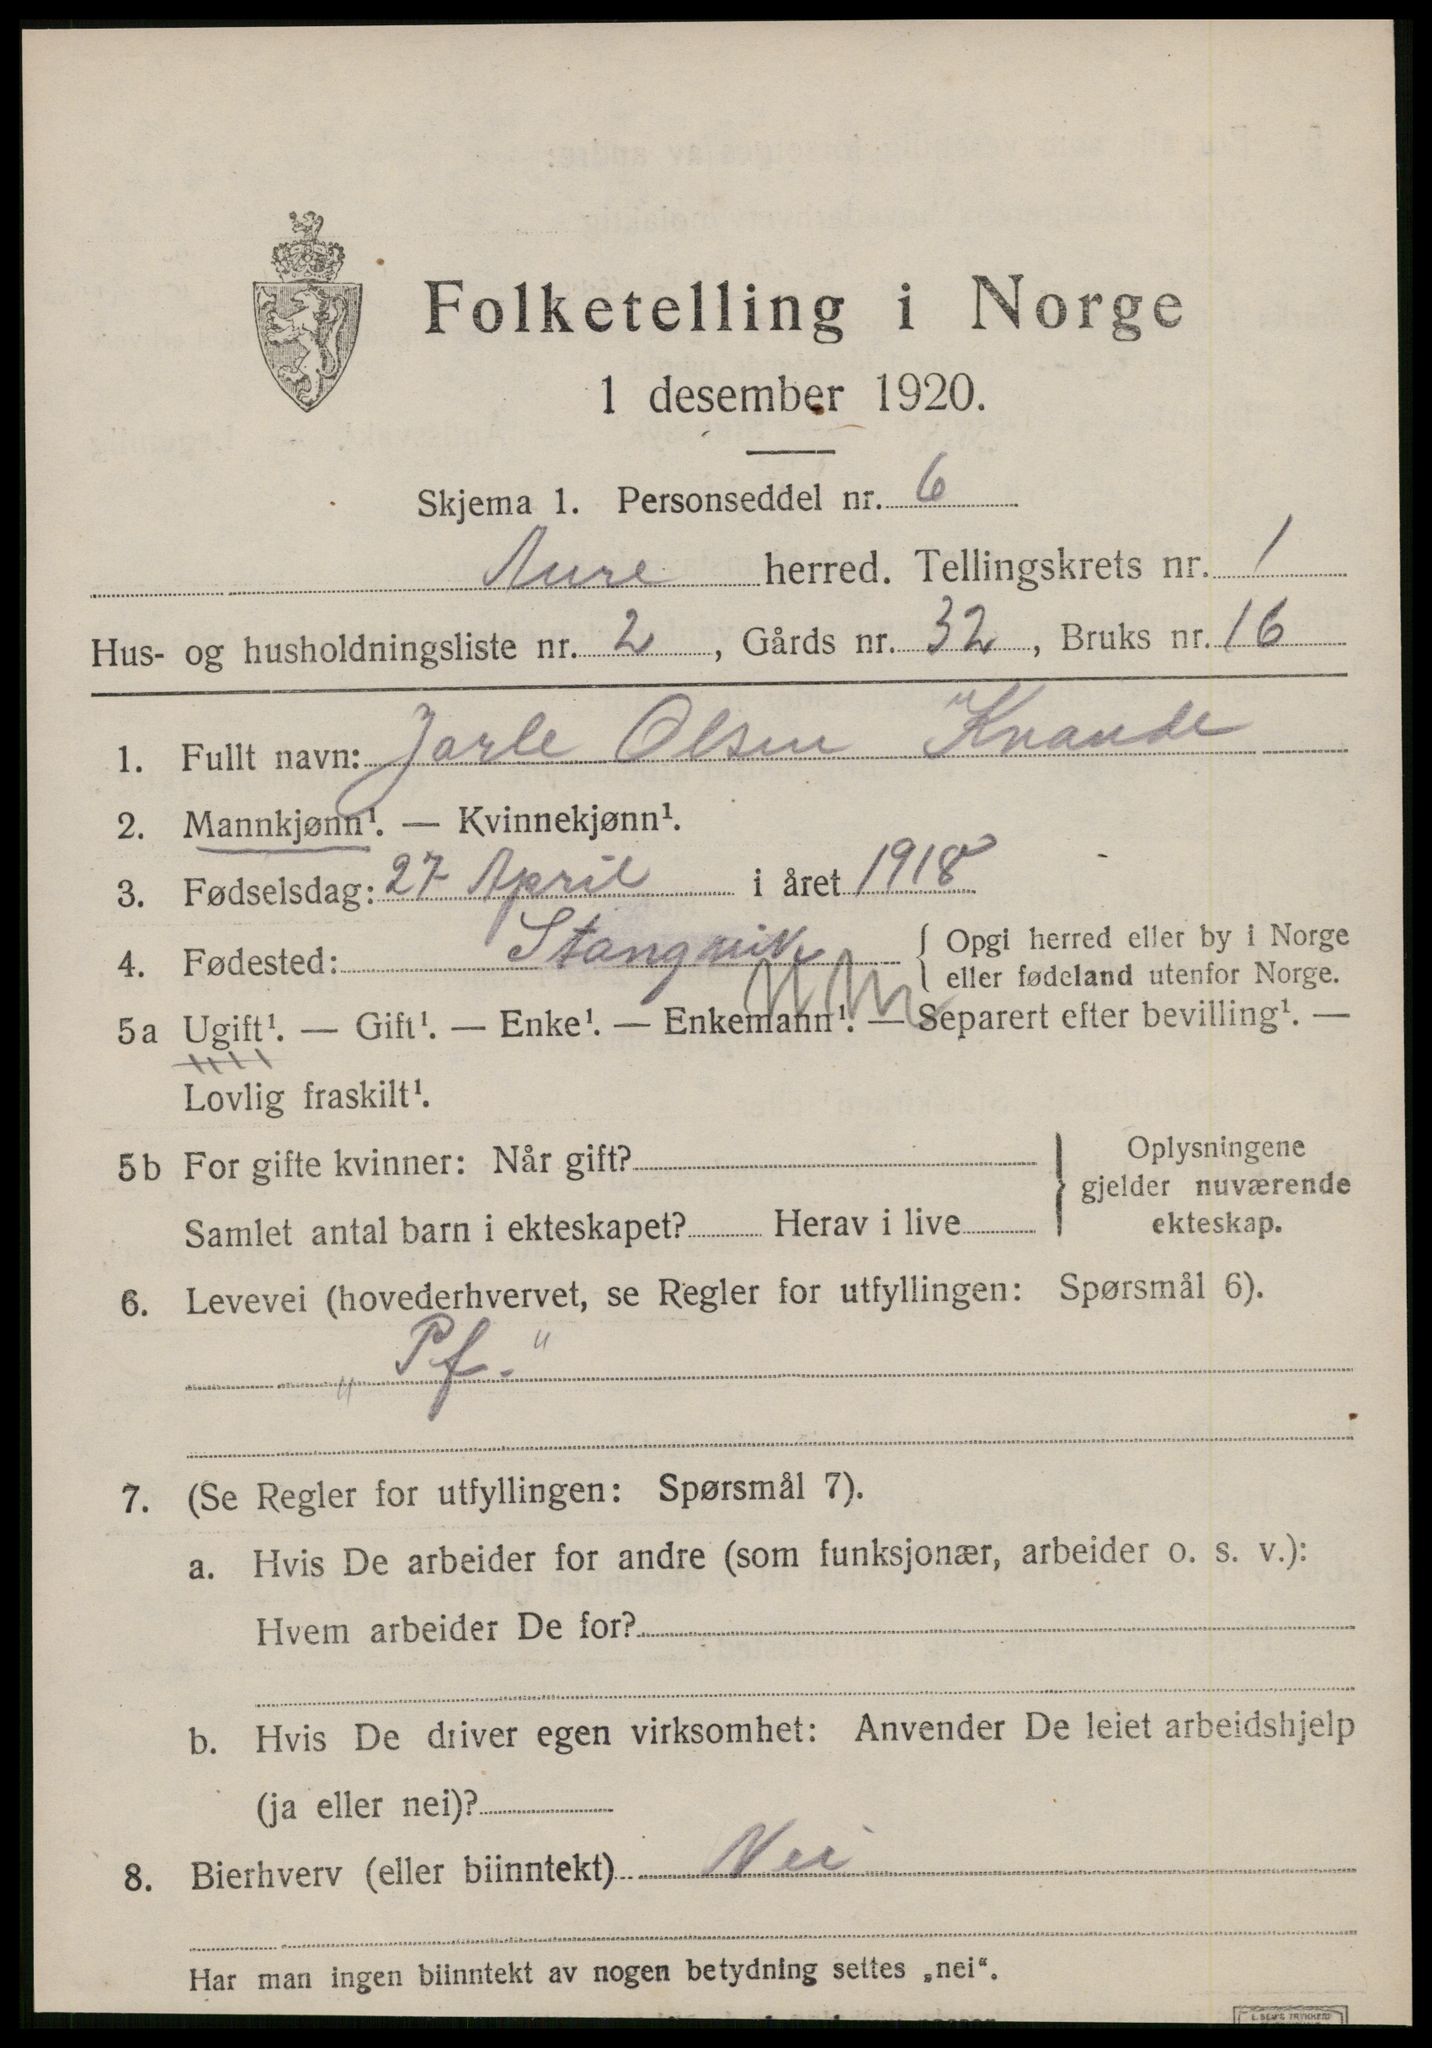 Folketelling i Norge
1 desember 1920.
Skjema 1. Personseddel nr. 6
Aure herred. Tellingskrets nr. 1
Hus- og husholdningsliste nr. 2, Gårds nr. 32, Bruks nr. 16
1. Fullt navn: Jarle Olsen
2. Mannkjønn¹. — Kvinnekjønn¹.
3. Fødselsdag: 27 April i året 1918
4. Fødested: Stangvik { Opgi herred eller by i Norge
eller fødeland utenfor Norge.
5a Ugift¹. — Gift¹. — Enke¹. — Enkemann¹. — Separert efter bevilling¹. —
Lovlig fraskilt¹.
5b For gifte kvinner: Når gift?
Samlet antal barn i ekteskapet? Herav i live
} Oplysningene
gjelder nuværende
ekteskap.
6. Levevei (hovederhvervet, se Regler for utfyllingen: Spørsmål 6).
„Pf.“
7. (Se Regler for utfyllingen: Spørsmål 7).
a. Hvis De arbeider for andre (som funksjonær, arbeider o. s. v.):
Hvem arbeider De for?
b. Hvis De driver egen virksomhet: Anvender De leiet arbeidshjelp
(ja eller nei)?
8. Bierhverv (eller biinntekt) Nei
Har man ingen biinntekt av nogen betydning settes „nei“.